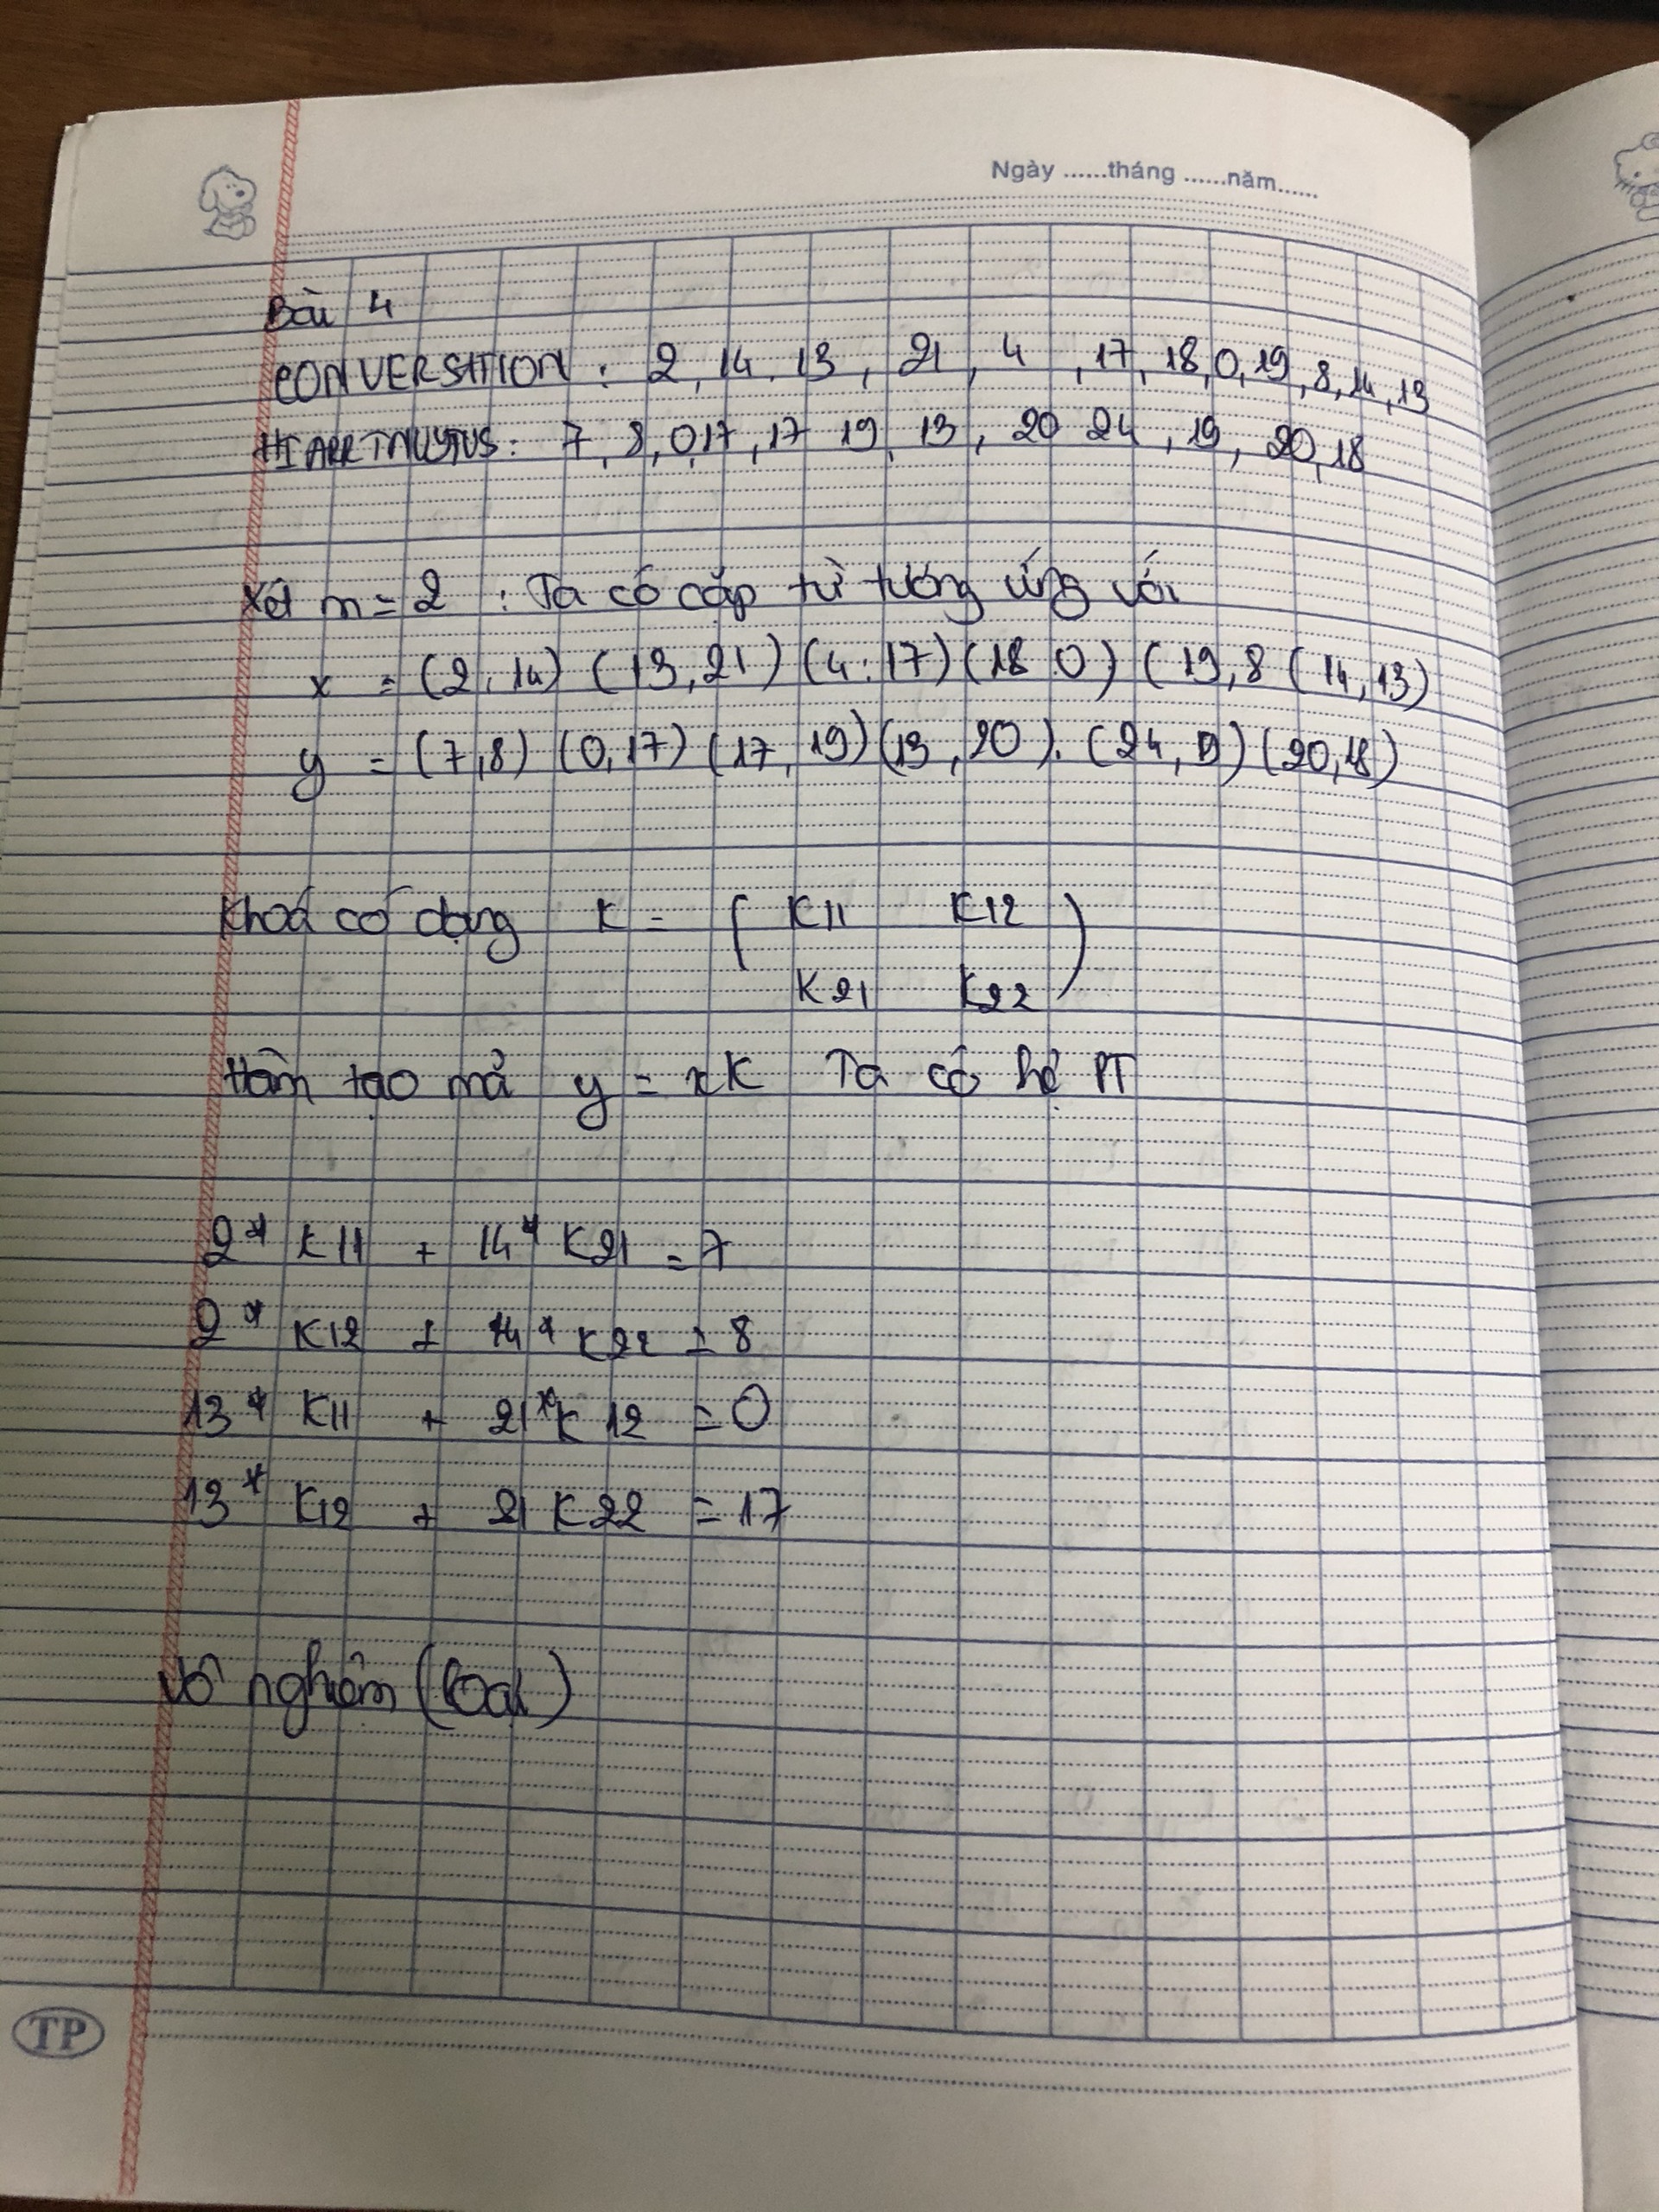 Ngày ......tháng ......năm......
Bài 4
CONVERSATION : 2, 14, 13, 21, 4, 17, 18, 0, 19, 8, 14, 13
HIARRTNUYTUS : 7, 8, 0, 17, 17 19, 13, 20 24, 19, 20, 18
Xét m = 2 : Ta có cặp từ tương ứng với
x = (2, 14) (13, 21) (4, 17) (18 0) (19, 8 (14, 13)
y = (7, 8) (0, 17) (17, 19) (13, 20). (24, 19) (20, 18)
Khoá có dạng K = ( K11 K12
K21 K22 )
Hàm tạo mã y = xK Ta có hệ PT
2* K11 + 14* K21 = 7
2* K12 + 14* K22 = 8
13* K11 + 21* K12 = 0
13* K12 + 21 K22 = 17
Vô nghiệm (loại)
TP